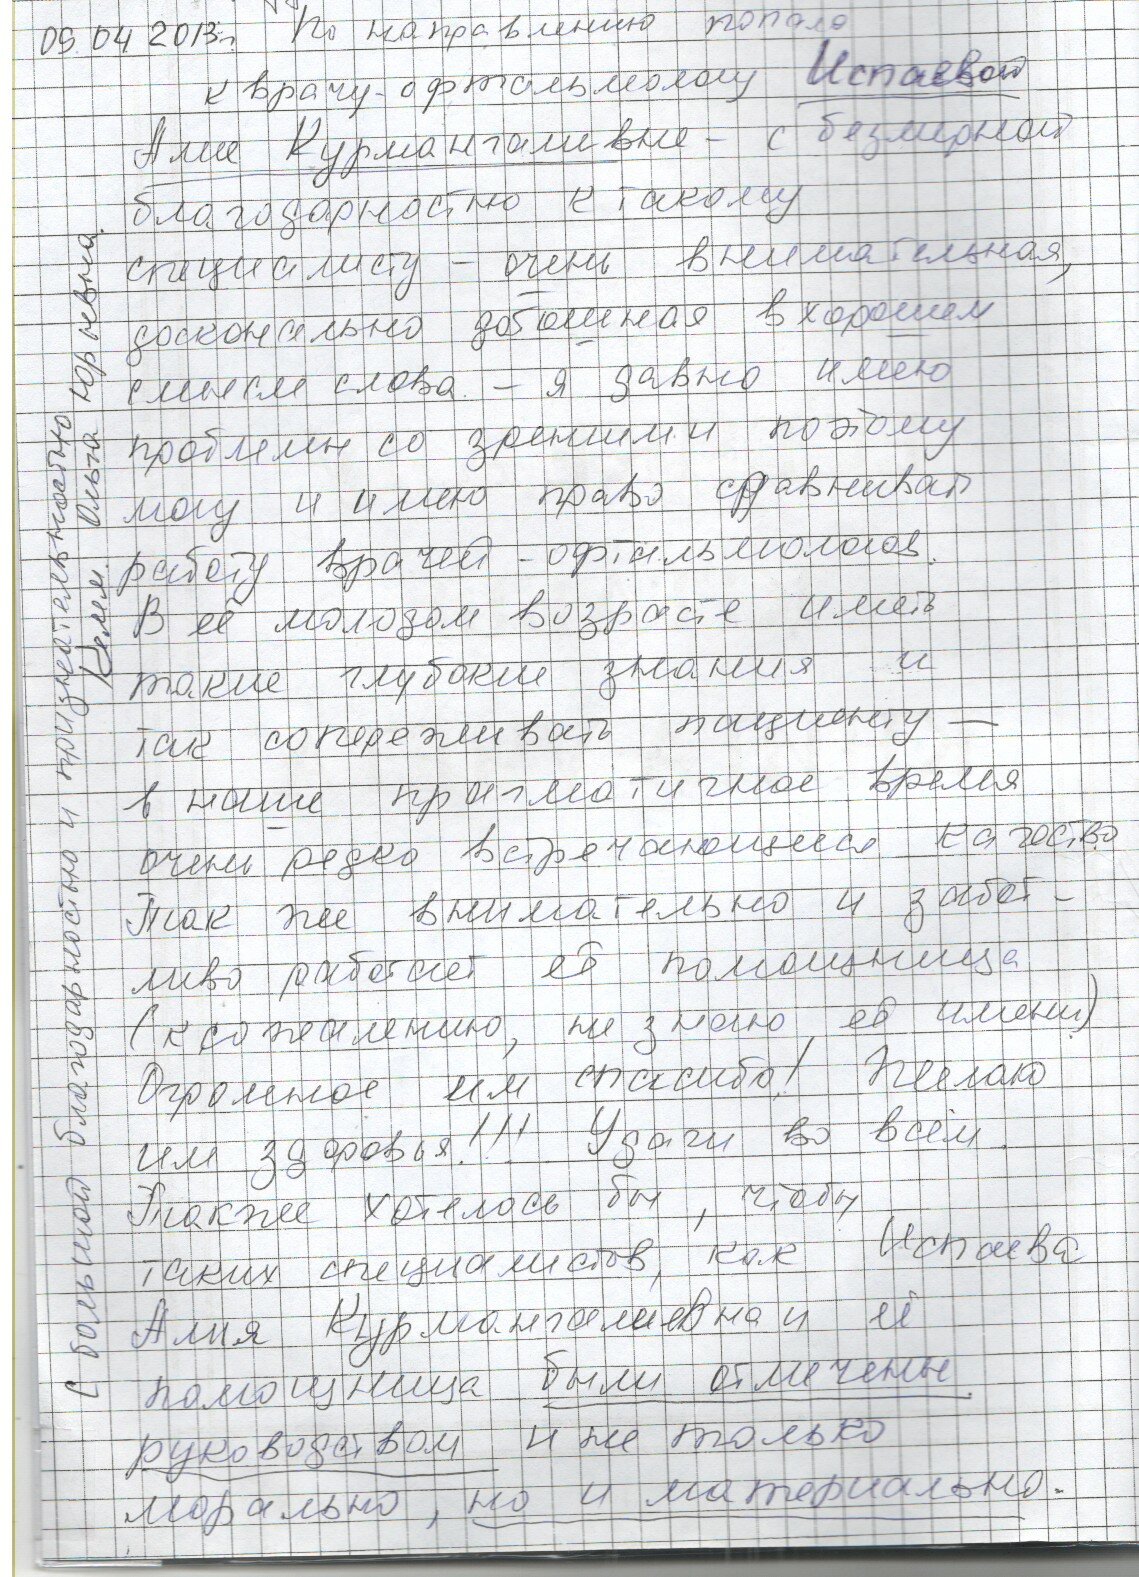 09.04 2013г. По направлению попала
к врачу-офтальмологу Испаевой
Алие Курмангалиевне - с безмерной
благодарностью к такому
специалисту - очень внимательная,
доскональная в хорошем
смысле слова. - я давно имею
проблемы со зрением и поэтому
могу и имею право сравнивать
работу врачей - офтальмологов.
В её молодом возрасте иметь
такие глубокие знания и
так сопереживать пациенту -
в наше прагматичное время
очень редко встречающиеся качество
Так же внимательно и забот-
ливо работает её помощница
(к сожалению, не знаю её имени)
Огромное им спасибо! Желаю
им здоровья!!! Удачи во всём.
Также хотелось бы, чтобы
таких специалистов, как Испаева
Алия Курмангалиевна и её
помощница были отмечены
руководством и не только
морально, но и материально.
С большой благодарностью и признательностью
Ольга Юрьевна.